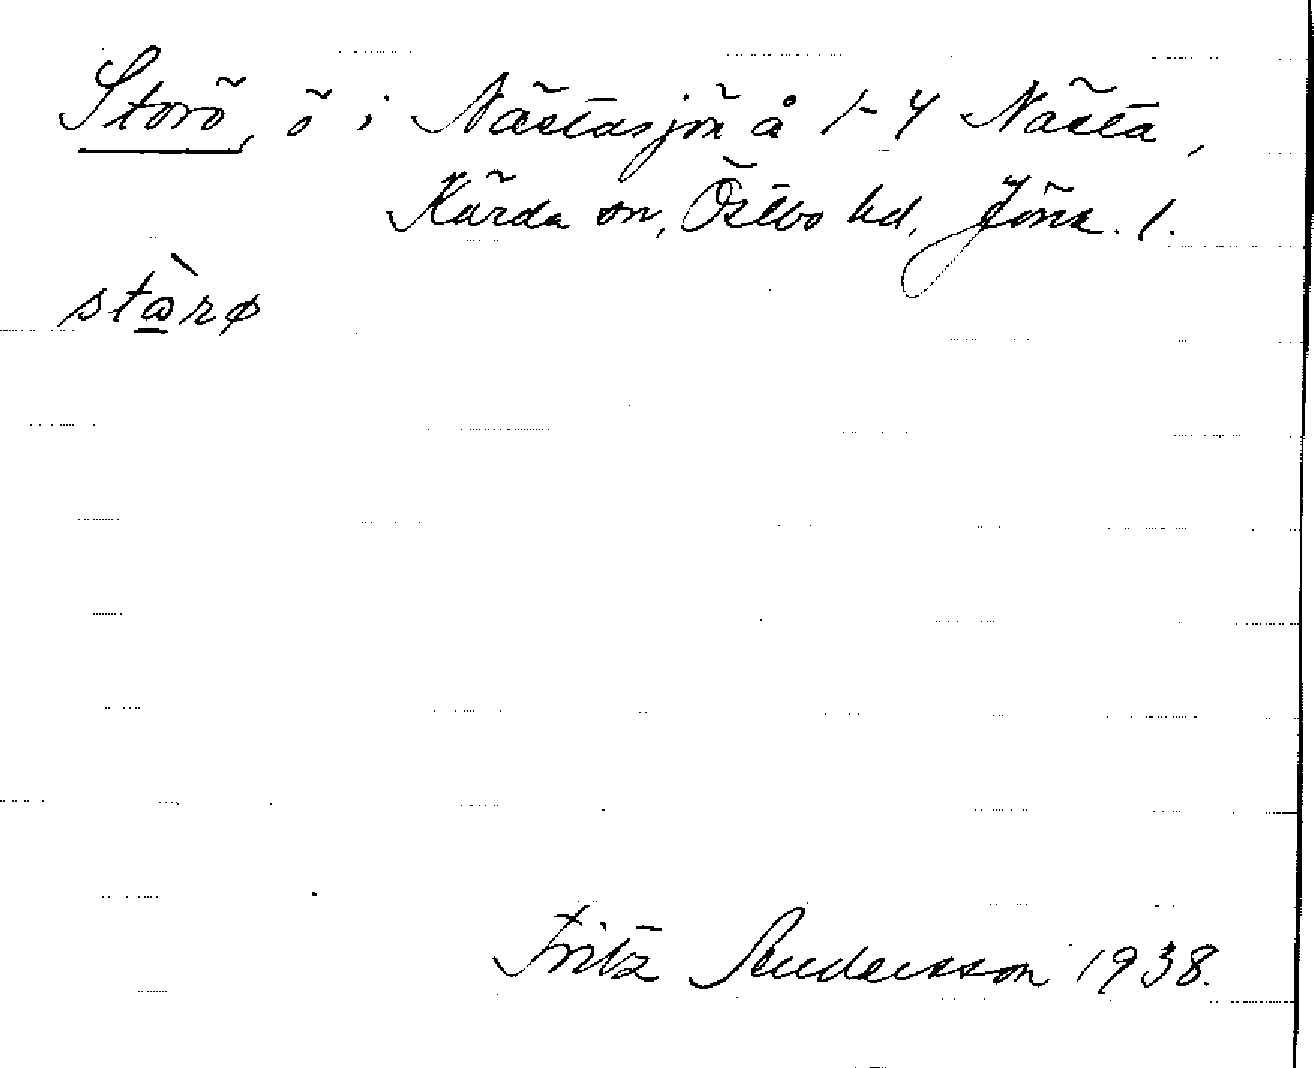 Storö, ö i Nästasjön å 1-4 Nästa,
Kärda sn, Östbo hd, Jönk. l.
stὼ̲rø
Fritz Andersson 1938.